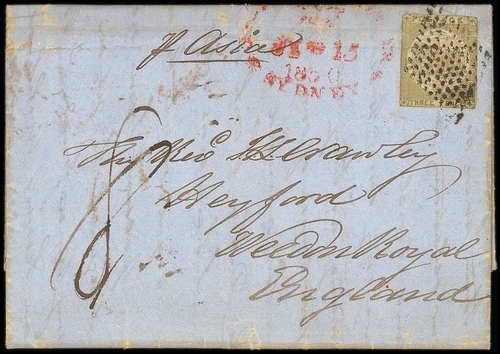 POSTAGE
p Asia
15
1850
SYDNEY
THREE PENCE
8
The Revd H Crawley
Heyford
Weedon Royal
England